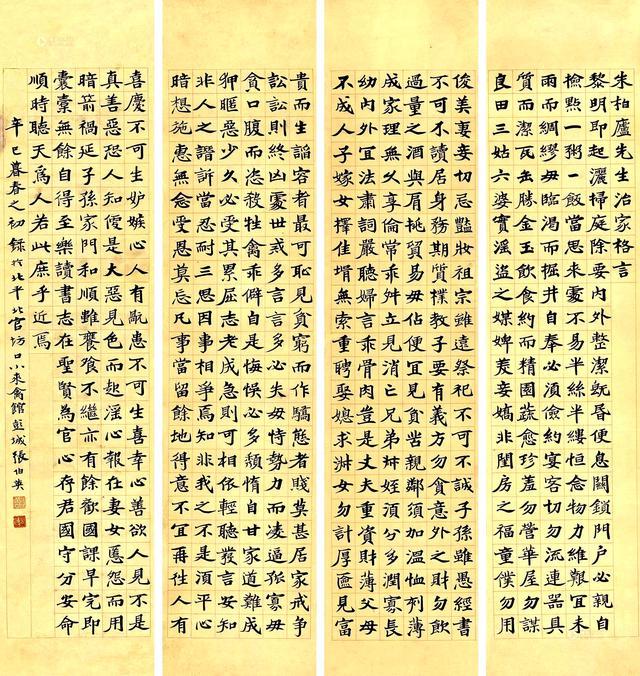 朱柏廬先生治家格言
黎明即起灑掃庭除要內外整潔既昏便息關鎖門戶必親自
檢點一粥一飯當思來處不易半絲半縷恒念物力維艱宜未
雨而綢繆毋臨渴而掘井自奉必須儉約宴客切勿流連器具
質而潔瓦缶勝金玉飲食約而精園蔬愈珍羞勿營華屋勿謀
良田三姑六婆實淫盜之媒婢美妾嬌非閨房之福童僕勿用
俊美妻妾切忌豔妝祖宗雖遠祭祀不可不誠子孫雖愚經書
不可不讀居身務期質樸教子要有義方勿貪意外之財勿飲
過量之酒與肩挑貿易毋佔便宜見貧苦親鄰須加溫恤刻薄
成家理無久享倫常乖舛立見消亡兄弟叔姪須分多潤寡長
幼內外宜法肅詞嚴聽婦言乖骨肉豈是丈夫重資財薄父母
不成人子嫁女擇佳壻無索重聘娶媳求淑女勿計厚奩見富
貴而生諂容者最可恥見貧窮而作驕態者賤莫甚居家戒爭
訟訟則終凶處世戒多言言多必失毋恃勢力而凌逼孤寡毋
貪口腹而恣殺牲禽乖僻自是悔悞必多頹惰自甘家道難成
狎暱惡少久必受其累屈志老成急則可相依輕聽發言安知
非人之譖訴當忍耐三思因事相爭焉知非我之不是須平心
暗想施惠無念受恩莫忘凡事當留餘地得意不宜再往人有
喜慶不可生妒嫉心人有禍患不可生喜幸心善欲人見不是
真善惡恐人知便是大惡見色而起淫心報在妻女匿怨而用
暗箭禍延子孫家門和順雖饔飧不繼亦有餘歡國課早完即
囊橐無餘自得至樂讀書志在聖賢為官心存君國守分安命
順時聽天為人若此庶乎近焉
辛巳暮春之初錄於北平北官坊口小來禽館彭城張伯英